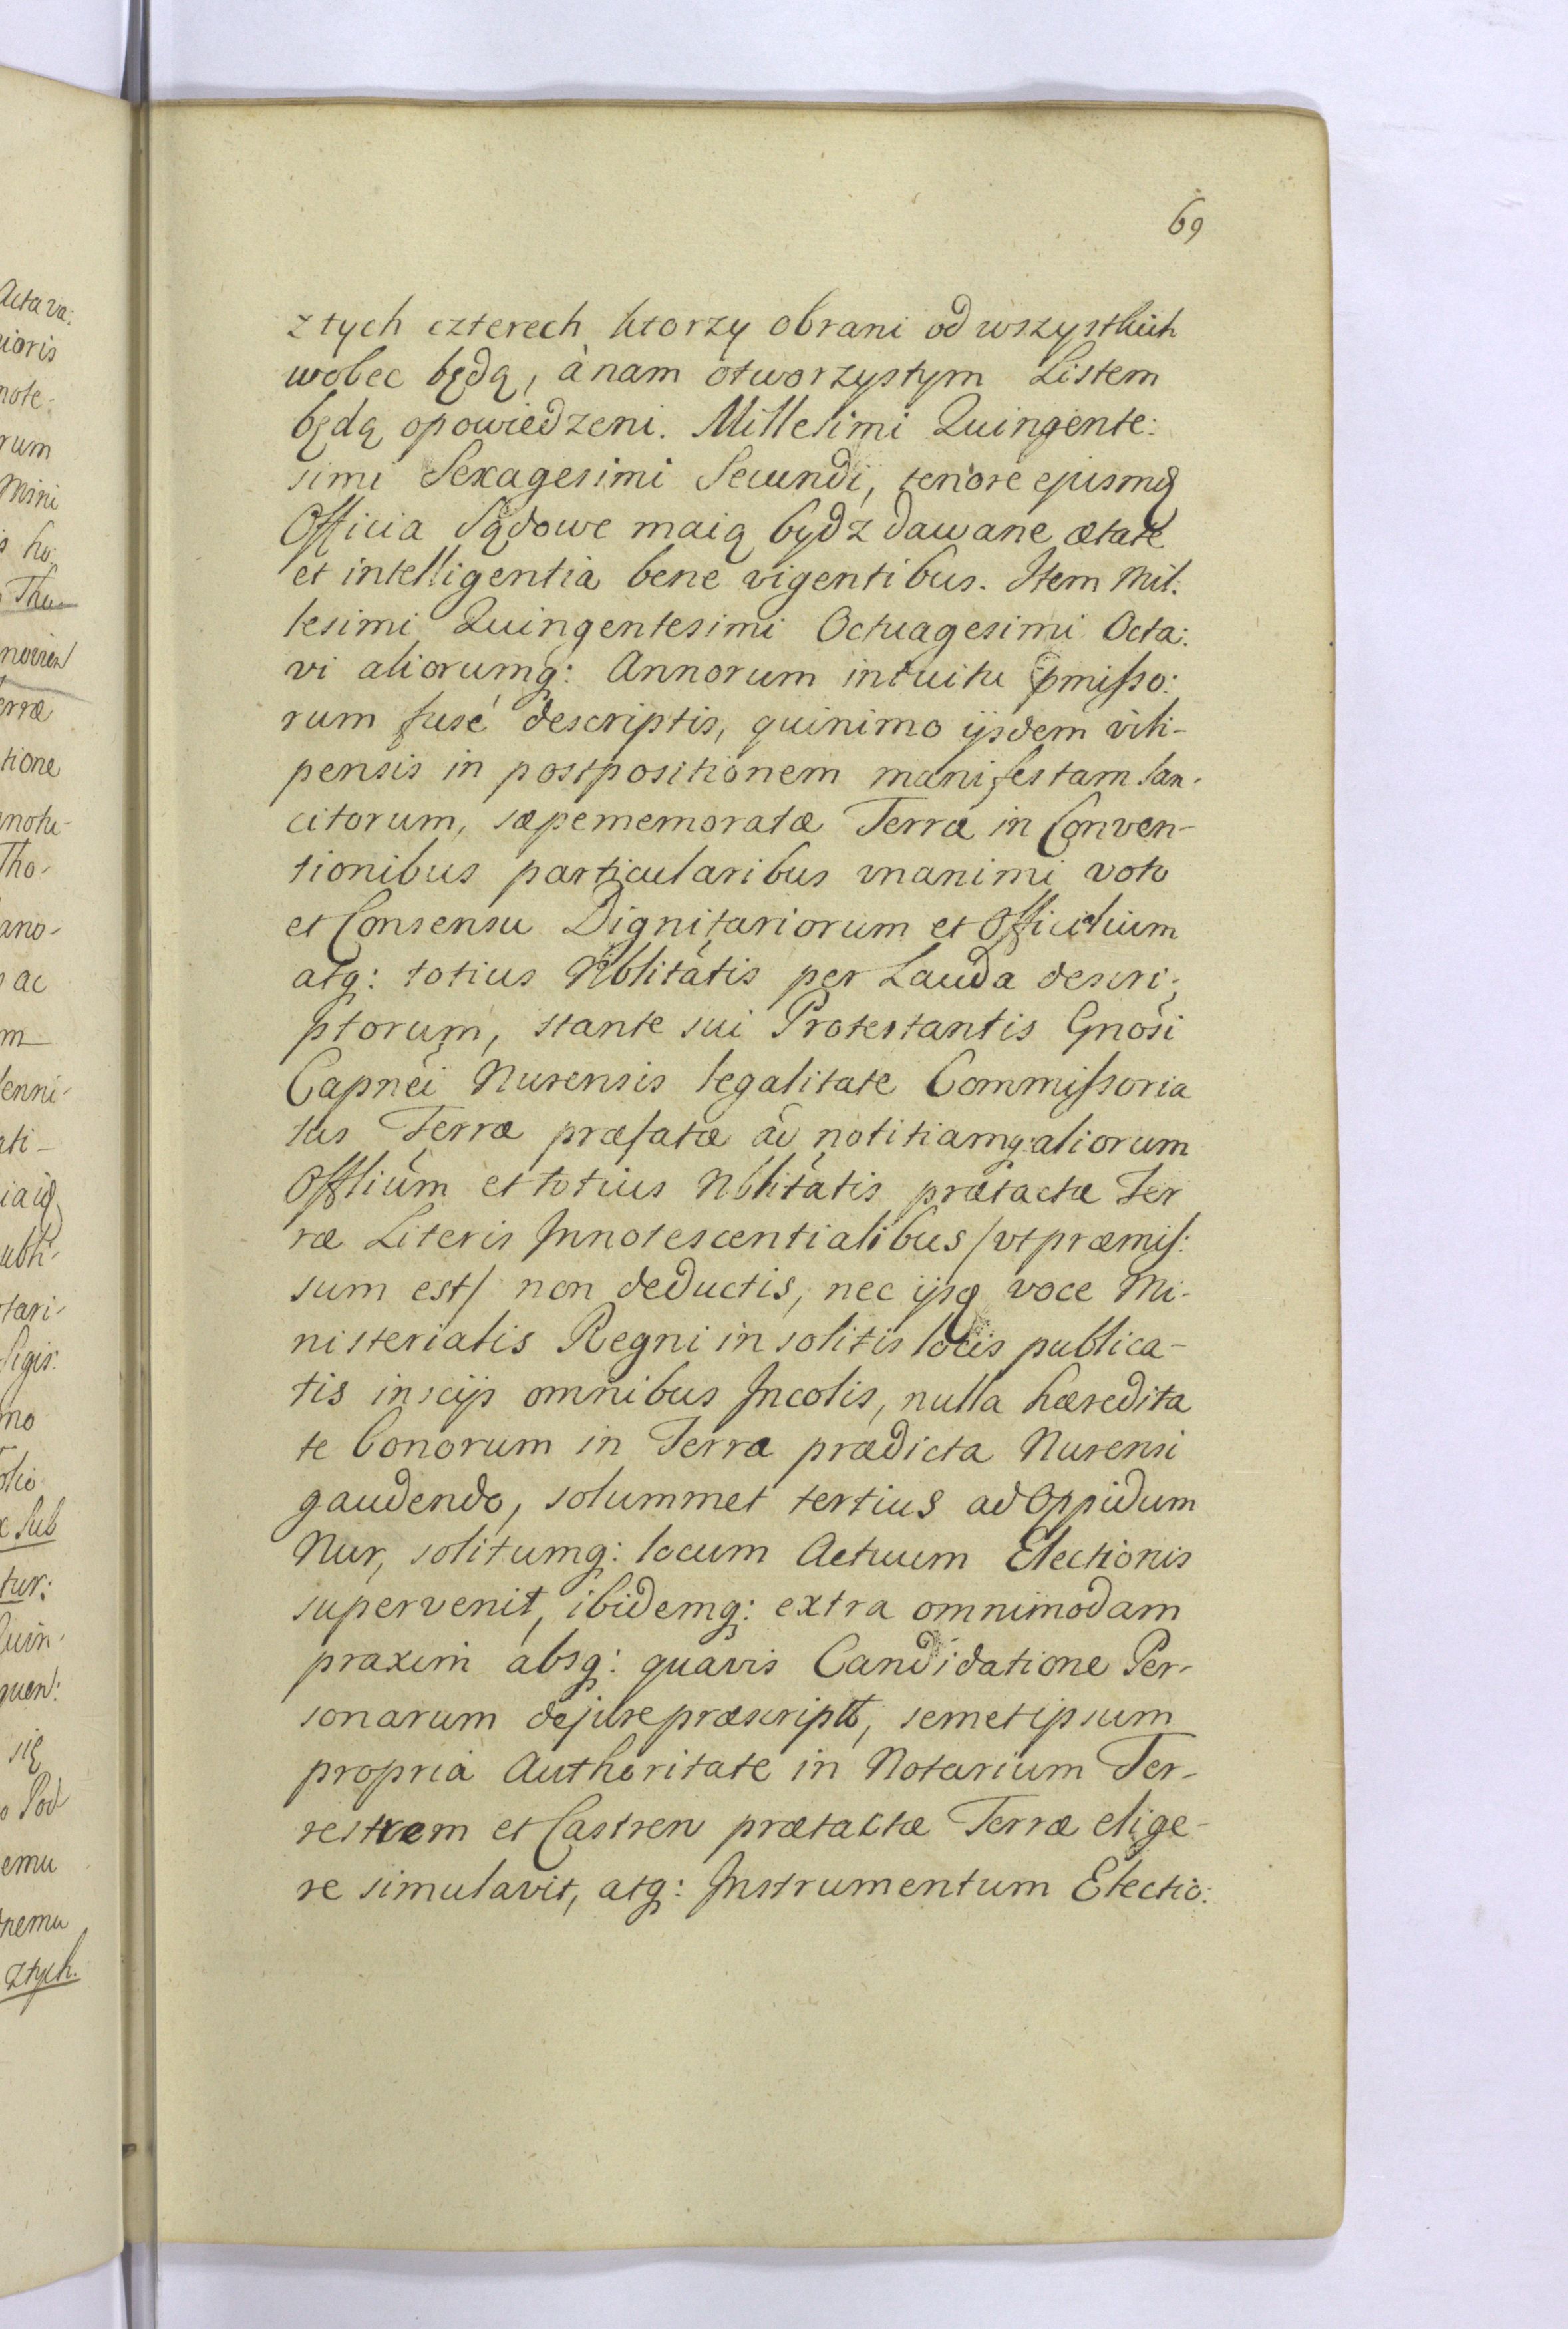 69
z tych czterech ktorzy obrani od wszystkich
wobec będą, à nam otworzystym Listem
będą opowiedzeni. Millesimi Quingente:
simi Sexagesimi Secundi, tenore ejusmq
Officia Sądowe maią bydz dawane ætate
et intelligentia bene vigentibus. Item Mil:
lesimi Quingentesimi Octuagesimi Octa:
vi aliorumq: Annorum intuitu pmisso:
rum fusé descriptis, quinimo ijsdem vili-
pensis in postpositionem manifestam San-
citorum, sæpememoratæ Terræ in Conven-
tionibus particularibus unanimi voto
et Consensu Dignitariorum et Officialium
atq: totius Nblitatis per Lauda descri:
ptorum, stante sui Protestantis Gnosi
Capnei Nurensis legalitate Commissoria
tus Terræ præfatæ ad notitiamq: aliorum
Offlium et totius Nblitatis prætactæ Ter
ræ Literis Innotescentialibus /vt præmis:
sum est/ non deductis, nec ijsq voce Mi-
nisterialis Regni in solitis locis publica-
tis inscijs omnibus Incolis, nulla hæredita
te bonorum in Terra prædicta Nurensi
gaudendo, solummet tertius ad Oppidum
Nur, solitumq: locum Actuum Electionis
supervenit, ibidemq: extra omnimodam
praxim absq: quavis Candidatione Per-
sonarum de jure præscripta, semetipsum
propria Authoritate in Notarium Ter-
restrem et Castren prætactæ Terræ elige-
re simulavit, atq: Instrumentum Electio:
Actava:
ioris
note:
rum
Mini
s ho:
Thu
erræ
tione
notu-
Tho-
ano-
ac
m
lenni-
ati-
ubli-
tari-
Sigis:
mo
olio
Sub
tur:
Quin-
quen:
się
o Pod
emu
nemu
z tych.